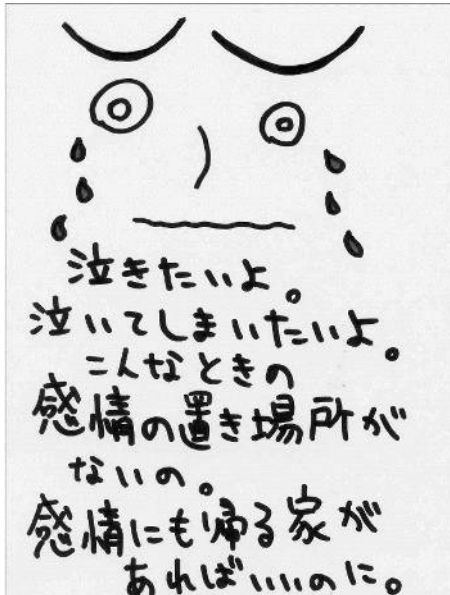 泣きたいよ。
泣いてしまいたいよ。
こんなときの
感情の置き場所が
ないの。
感情にも帰る家が
あればいいのに。